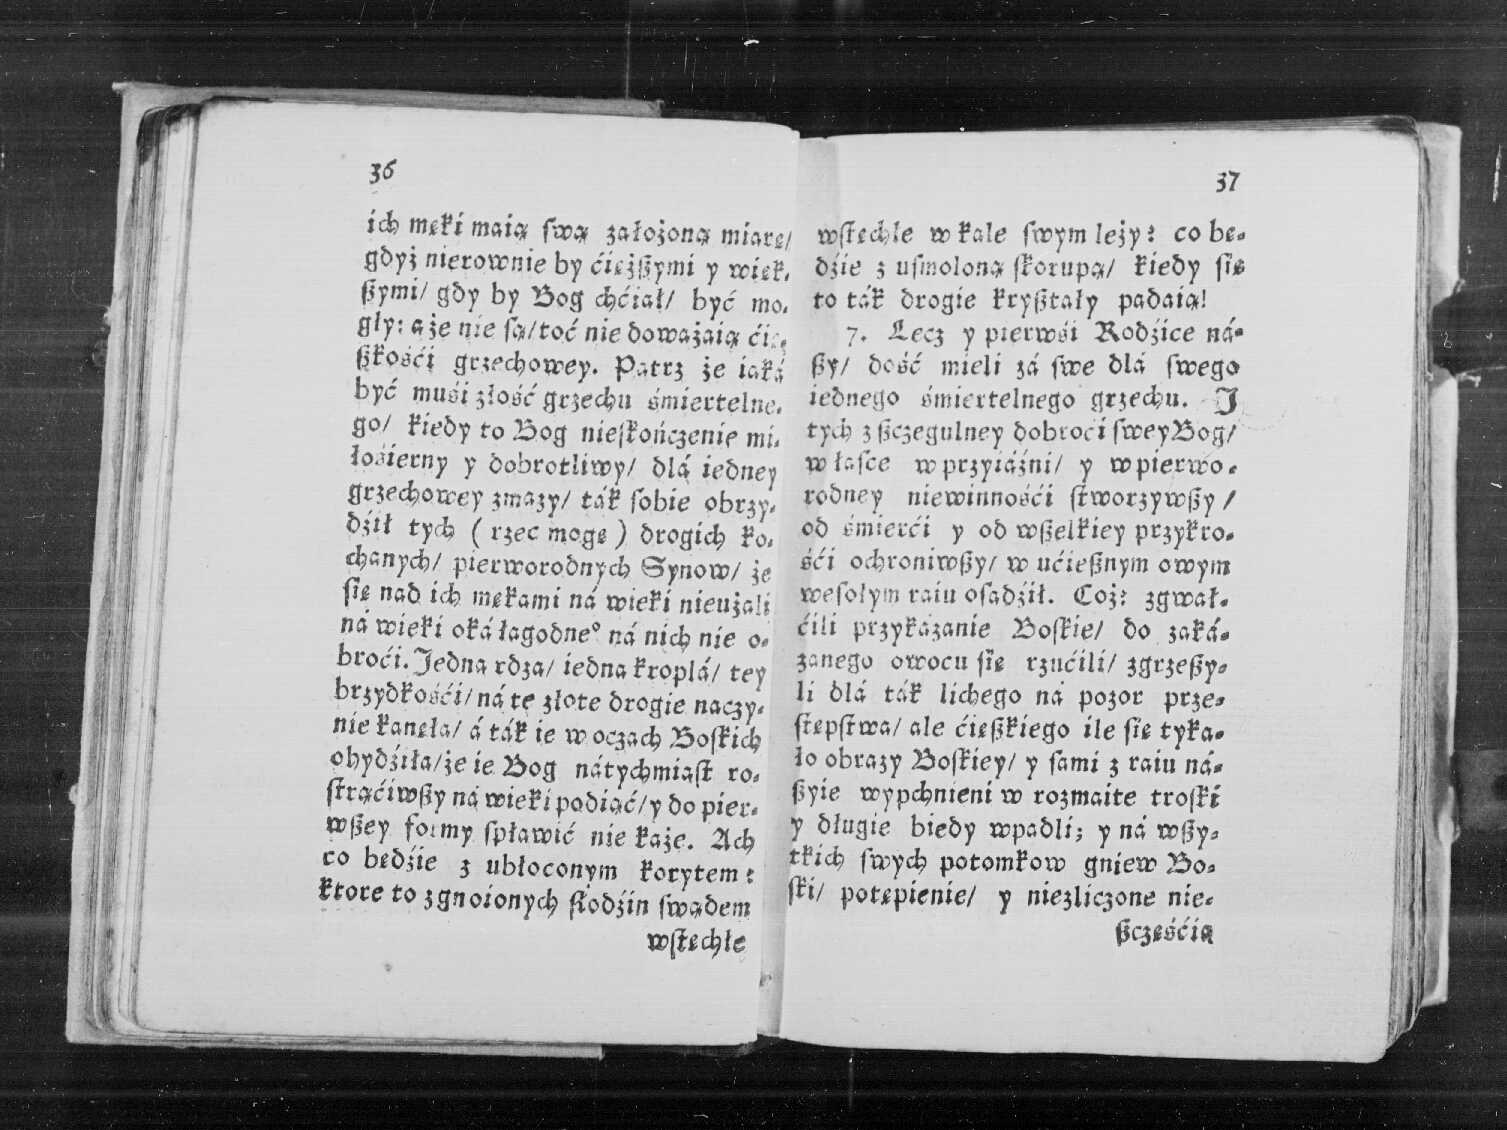 36
ich męki maią swą założoną miarę/
gdyż nierownie by ćięższymi y więk-
szymi/ gdy by Bog chćiał/ być mo-
gły: a że nie są/ toć nie doważaią ćię-
szkośći grzechowey. Patrz że iaká
być muśi złość grzechu śmiertelne-
go/ kiedy to Bog nieskończenie mi-
łośierny y dobrotliwy/ dlá iedney
grzechowey zmazy/ ták sobie obrzy-
dźił tych ( rzec mogę ) drogich ko-
chanych/ pierworodnych Synow/ że
się nad ich mękami ná wieki nieużali
ná wieki oká łagodneº ná nich nie o-
broći. Jedna rdza/ iedna kroplá/ tey
brzydkośći/ ná te złote drogie naczy-
nie kanęła/ á ták ie w oczach Boskich
ohydźiła/ że ie Bog nátychmiast ro-
strąćiwszy ná wieki podiąć/ y do pier-
wszey formy spławić nie każe. Ach
co będźie z ubłoconym korytem?
ktore to zgnoionych słodźin swądem
wstęchłe
37
wstęchłe w kale swym leży? co bę-
dźie z usmoloną skorupą/ kiedy się
to ták drogie kryształy padaią!
7. Lecz y pierwśi Rodźice ná-
szy/ dość mieli zá swe dlá swego
iednego śmiertelnego grzechu. J
tych z szczegulney dobroci swey Bog/
w łasce w przyiáźni/ y w pierwo-
rodney niewinnośći stworzywszy/
od śmierći y od wszelkiey przykro-
śći ochroniwszy/ w ućiesznym owym
wesołym raiu osadźił. Coż? zgwał-
ćili przykazanie Boskie/ do zaká-
zanego owocu się rzućili/ zgrzeszy-
li dlá ták lichego ná pozor prze-
stępstwa/ ale ćięszkiego ile się tyka-
ło obrazy Boskiey/ y sami z raiu ná-
szyie wypchnieni w rozmaite troski
y długie biedy wpadli; y ná wszy-
tkich swych potomkow gniew Bo-
ski/ potępienie/ y niezliczone nie-
szczęśćią